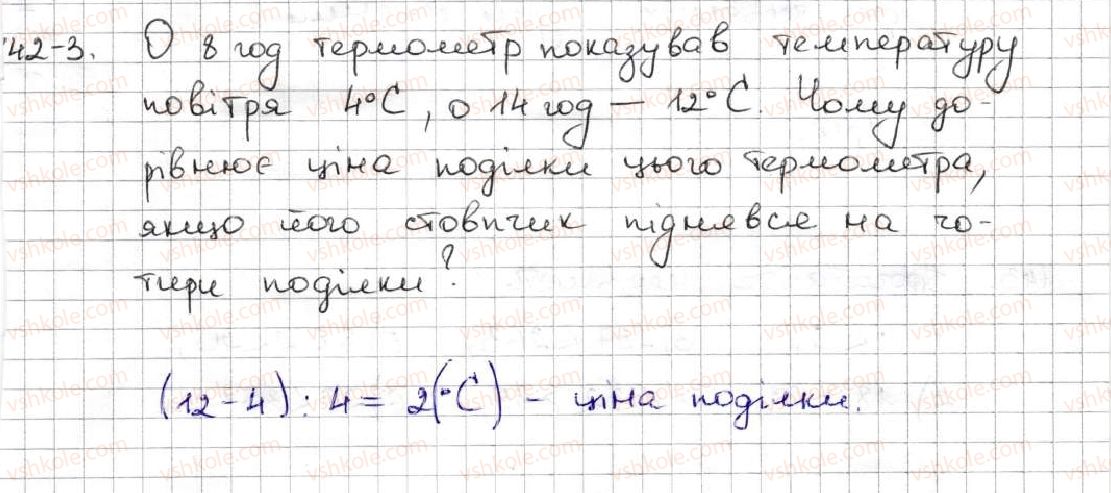 42-3. О 8 год термометр показував температуру
повітря 4°С, о 14 год — 12°С. Чому до-
рівнює ціна поділки цього термометра,
якщо його стовпчик піднявся на чо-
тири поділки?
(12-4): 4 = 2(°С) - ціна поділки.